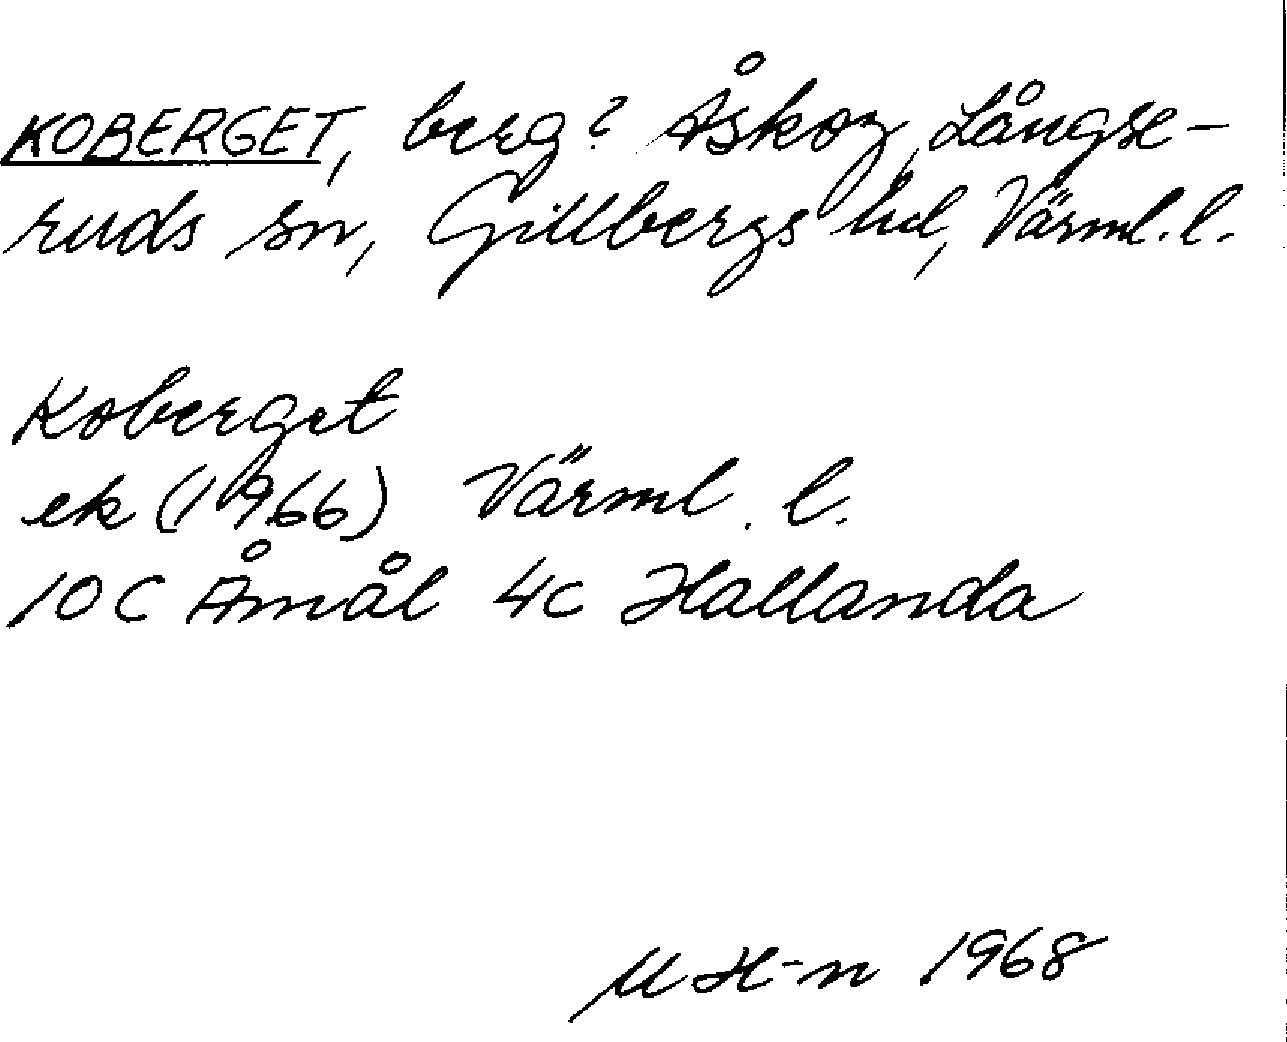 KOBERGET, berg? Åskog, Långse-
ruds sn, Gillbergs hd, Värml. l.
Koberget
ek (1966) Värml. l.
10C Åmål 4c Hallanda
M H-n 1968